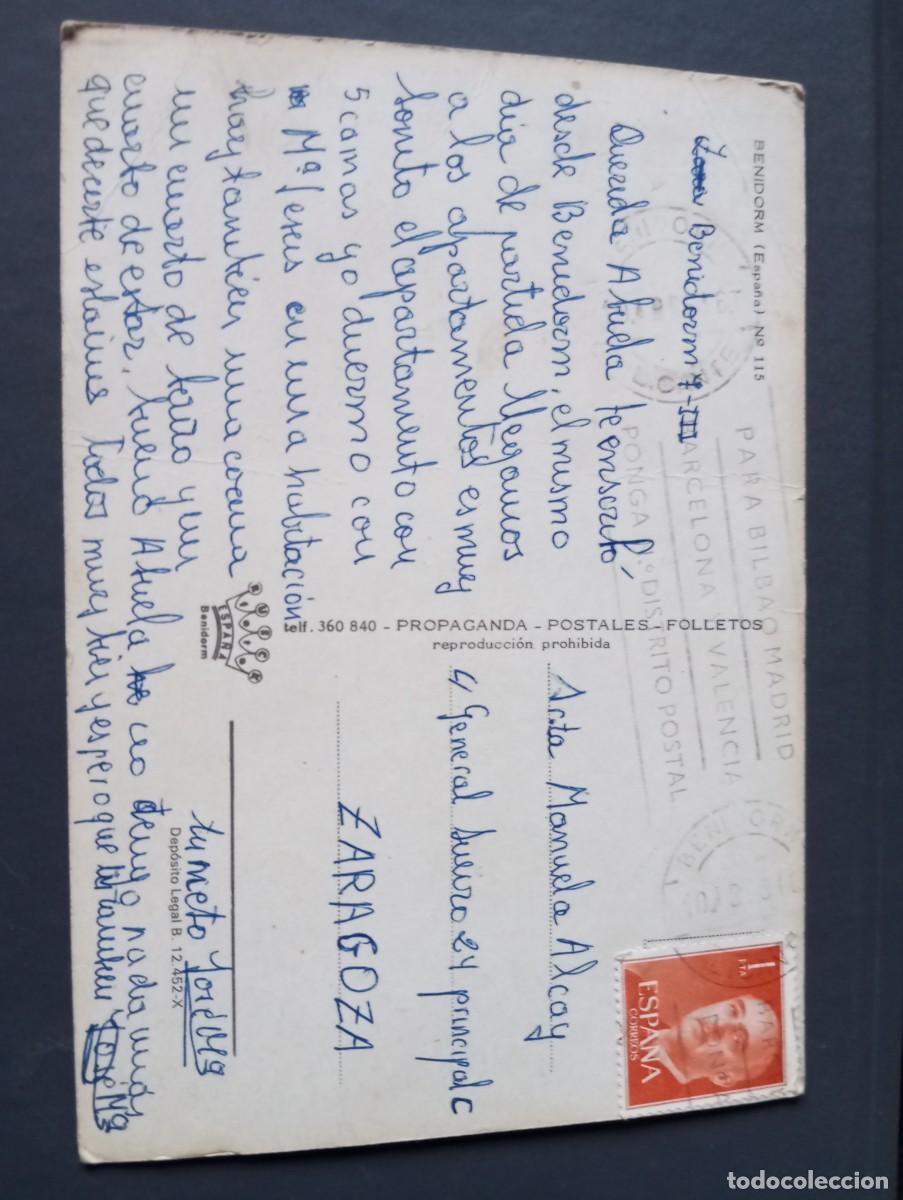 BENIDORM (España) Nº 115
Benidorm 7-III
Querida Abuela te enscribó
desde Benidorm, el mismo
dia de partida llegamos
a los apartamentos es muy
bonito el apartamento con
5 camas yo duermo con
Mª Jesus en una habitación
hay tambien una cama
un cuarto de baño y un
cuarto de estar, bueno Abuela no tengo nada más
que decirte estamos Todos muy bien y espero que tu tambien José Mª
tu nieto José Mª
telf. 360 840 - PROPAGANDA - POSTALES - FOLLETOS
reproducción prohibida
RUECK
ESPAÑA
Benidorm
Depósito Legal B. 12.452-X
PARA BILBAO MADRID
BARCELONA Y VALENCIA
PONGA N.º DISTRITO POSTAL
BENIDORM
Srta Manuela Alcay
C/ General Sueiro 24 principal C
ZARAGOZA
1 PTA
ESPAÑA
CORREOS
todocoleccion